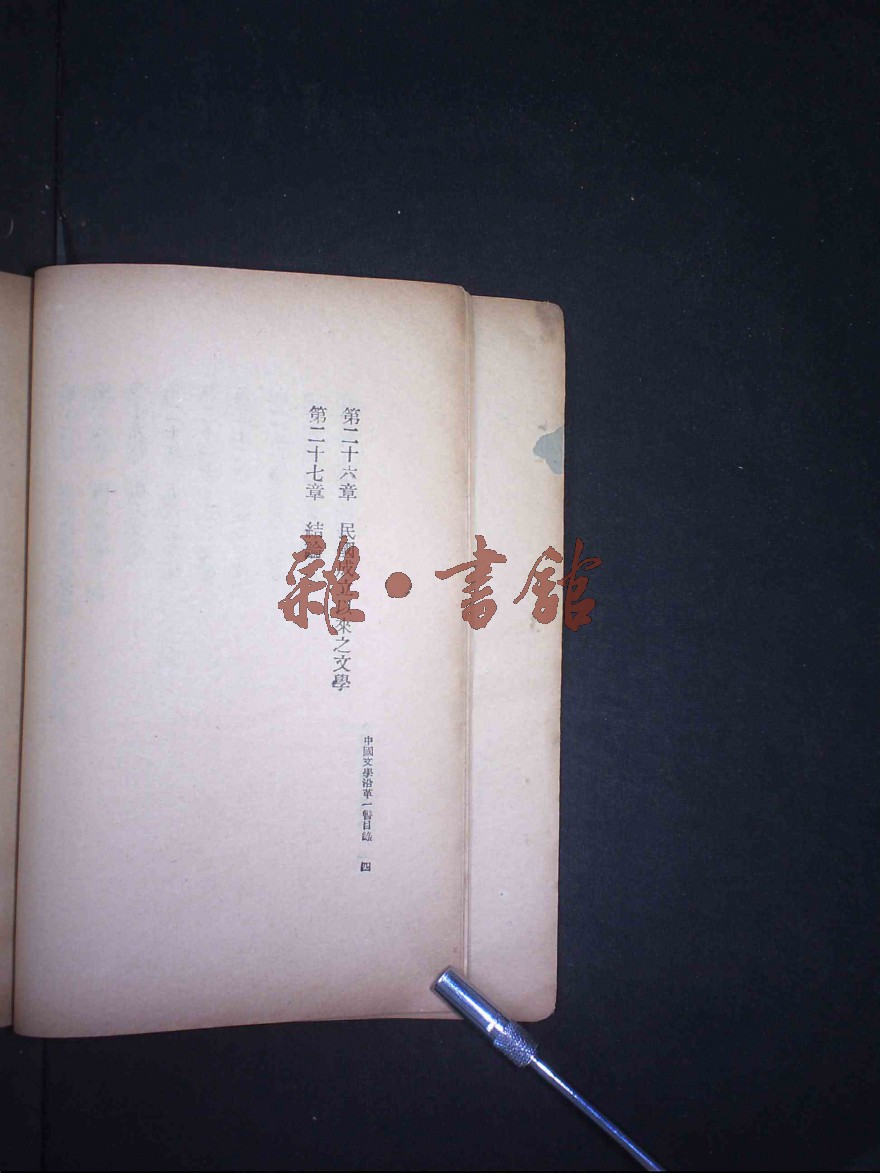 第二十六章　民國成立以來之文學
第二十七章　結論
中國文學沿革一瞥目錄　四
雜·書館